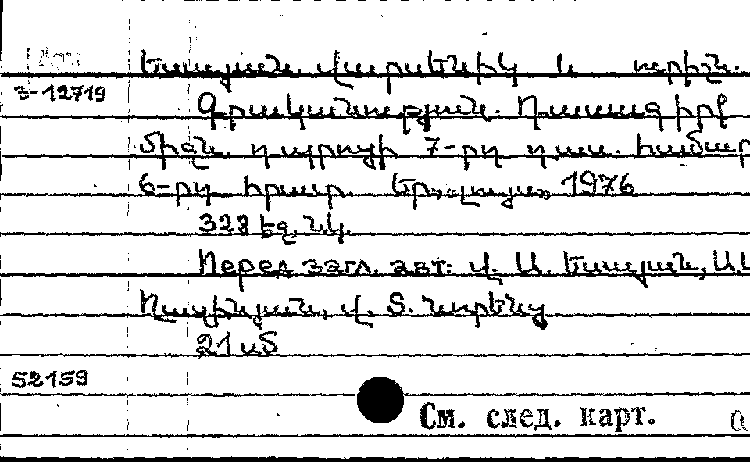 Եսայան վարսենիկ և ուրիշ.
3-12719
Գրականություն. Դասագիրք
միջն. դպրոցի 7-րդ դաս. համար
6-րդ հրատ. Եր., «Լույս» 1976
328 էջ. նկ.
Перед загл. авт: Վ. Ա. Եսայան, Ա.
Վ. Տ.
21 սՏ
52159
См. след. карт.